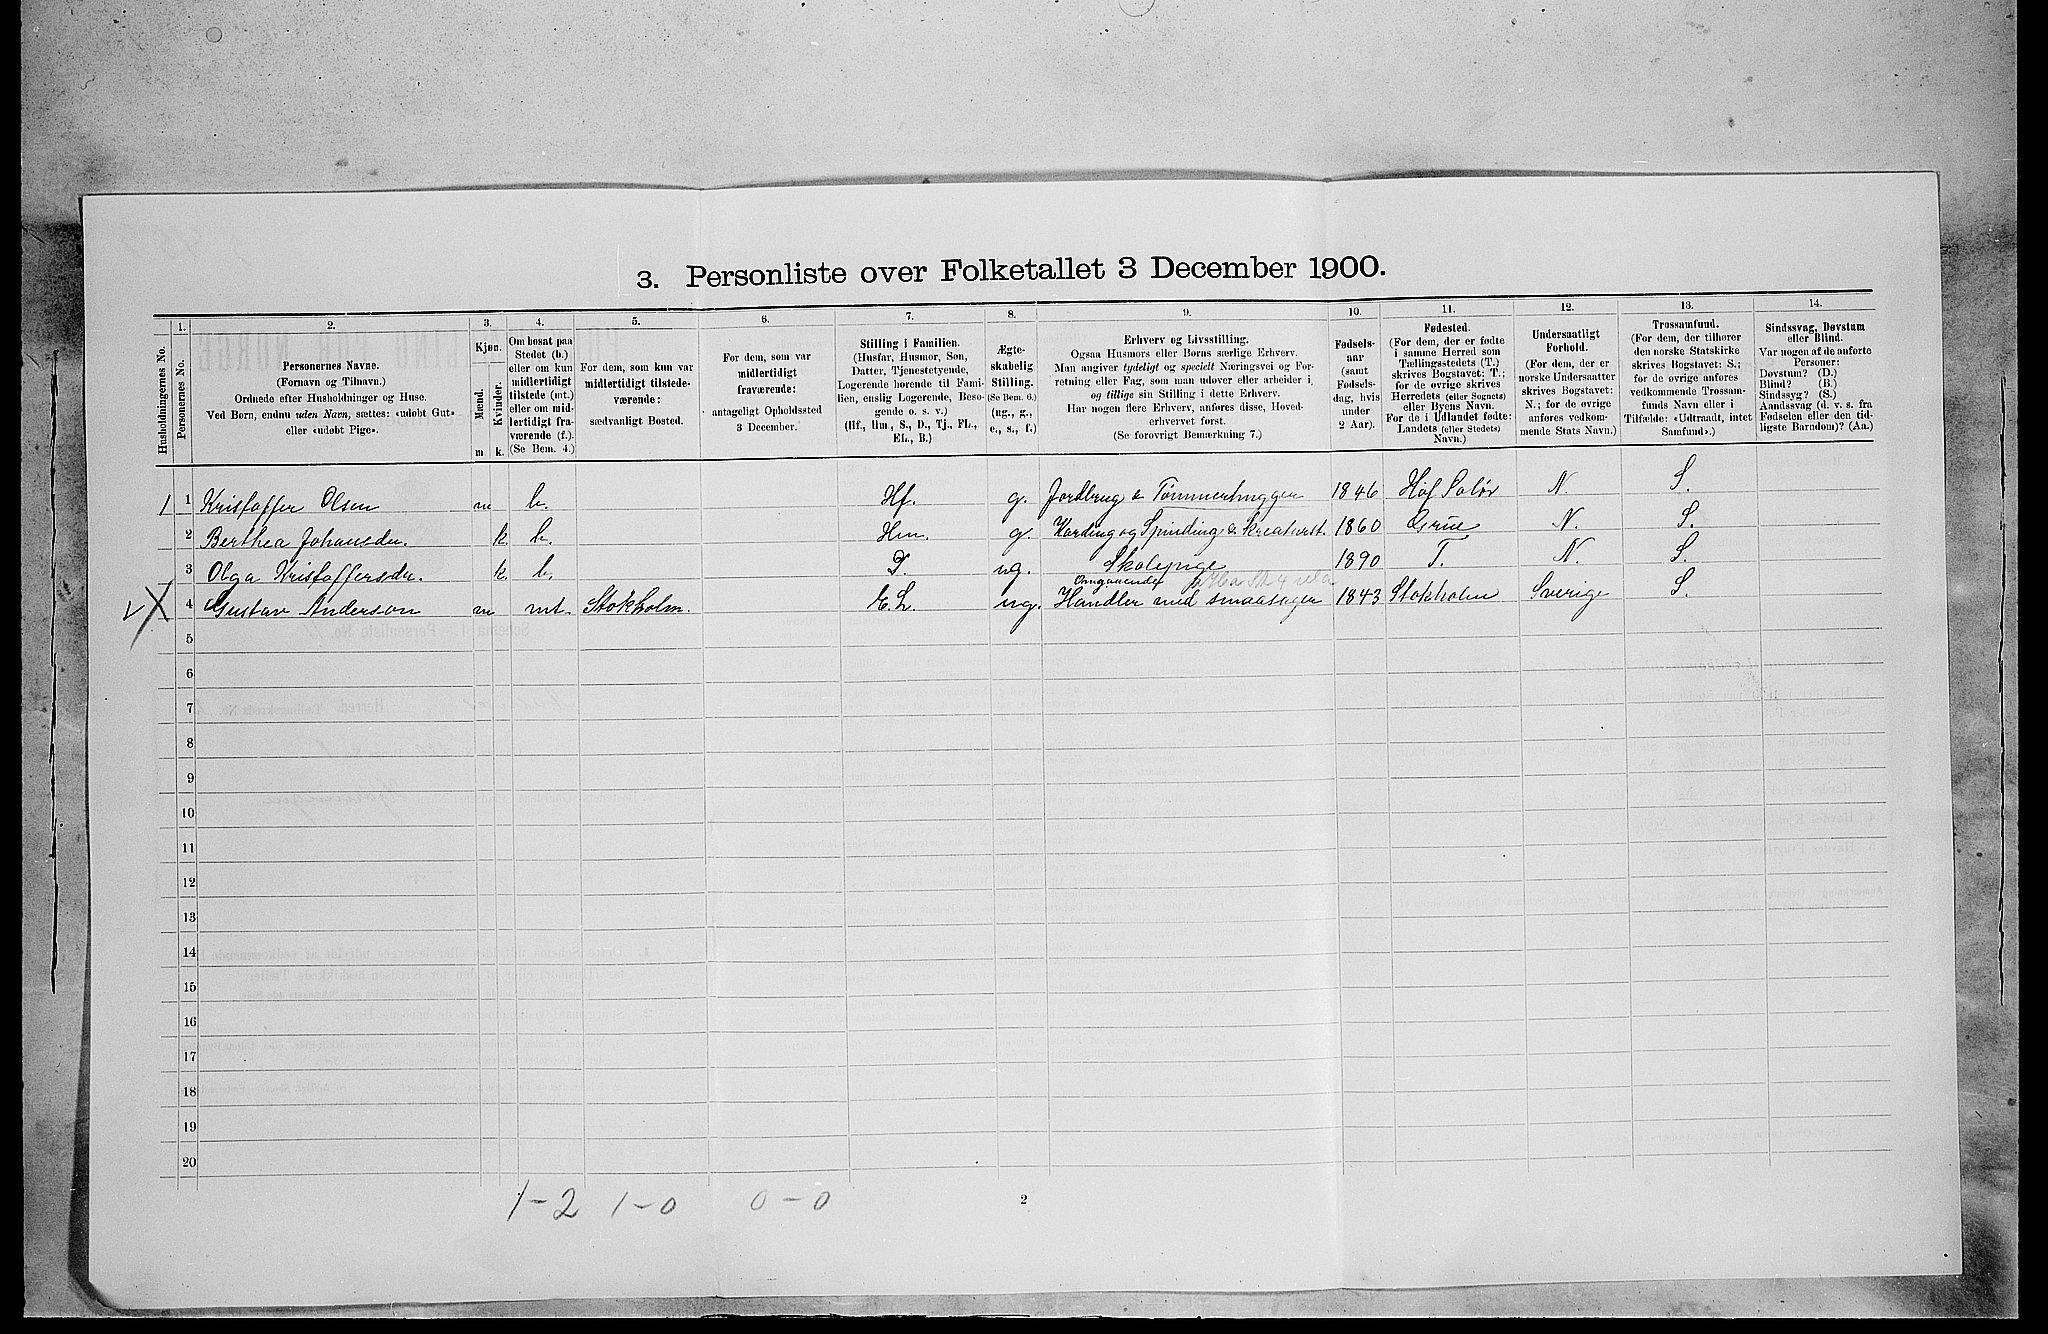 3. Personliste over Folketallet 3 December 1900.
Husholdningernes No.
1.
Personernes No.
2.
Personernes Navne.
(Fornavn og Tilnavn.)
Ordnede efter Husholdninger og Huse.
Ved Børn, endnu uden Navn, sættes: «udøbt Gut»
eller «udøbt Pige».
3.
Kjøn.
Mænd.
Kvinder.
m
k.
4.
Om bosat paa
Stedet (b.)
eller om kun
midlertidigt
tilstede (mt.)
eller om mid-
lertidigt fra-
værende (f.).
(Se Bem. 4.)
5.
For dem, som kun var
midlertidigt tilstede-
værende:
sædvanligt Bosted.
6.
For dem, som var
midlertidigt
fraværende:
antageligt Opholdssted
3 December.
7.
Stilling i Familien.
(Husfar, Husmor, Søn,
Datter, Tjenestetyende,
Logerende hørende til Fami-
lien, enslig Logerende, Besø-
gende o. s. v.)
(Hf., Hm., S., D., Tj., FL.,
EL., B.)
8.
Ægte-
skabelig
Stilling.
(Se Bem. 6.)
(ug., g.,
e., s., f.)
9.
Erhverv og Livsstilling.
Ogsaa Husmors eller Børns særlige Erhverv.
Man angiver tydeligt og specielt Næringsvei og For-
retning eller Fag, som man udøver eller arbeider i,
og tillige sin Stilling i dette Erhverv.
Har nogen flere Erhverv, anføres disse, Hoved-
erhvervet først.
(Se forøvrigt Bemærkning 7.)
10.
Fødsels-
aar
(samt
Fødsels-
dag, hvis
under
2 Aar).
11.
Fødested.
(For dem, der er fødte
i samme Herred som
Tællingsstedets (T.)
skrives Bogstavet: T.;
for de øvrige skrives
Herredets (eller Sognets)
eller Byens Navn.
For de i Udlandet fødte:
Landets (eller Stedets)
Navn.)
12.
Undersaatligt
Forhold.
(For dem, der er
norske Undersaatter
skrives Bogstavet:
N.; for de øvrige
anføres vedkom-
mende Stats Navn.)
13.
Trossamfund.
(For dem, der tilhører
den norske Statskirke
skrives Bogstavet: S.;
for de øvrige anføres
vedkommende Trossam-
funds Navn eller i
Tilfælde: «Udtraadt, intet
Samfund».)
14.
Sindssvag, Døvstum
eller Blind.
Var nogen af de anførte
Personer:
Døvstum? (D.)
Blind? (B.)
Sindssyg? (S.)
Aandssvag (d. v. s. fra
Fødselen eller den tid-
ligste Barndom)? (Aa.)
1 1 Kristaffer Olsen m b. Hf. g. Jordbrug & Tømmerhugger 1846 Hof Solør N. S.
2 Berthea Johansdr. k. b. Hm. g. Karding og Spinding & Kreaturst. 1860 Grue N. S.
3 Olga Kristaffersdr. k. b. D. ug. Skolepige 1890 T. N. S.
Omgaaende
4 Gustav Anderson m mt. Stokholm. E.L. ug. Handler med smaasager 1843 Stokholm Sverige S.
5
6
7
8
9
10
11
12
13
14
15
16
17
18
19
20
1-2 1-0 0-0
2